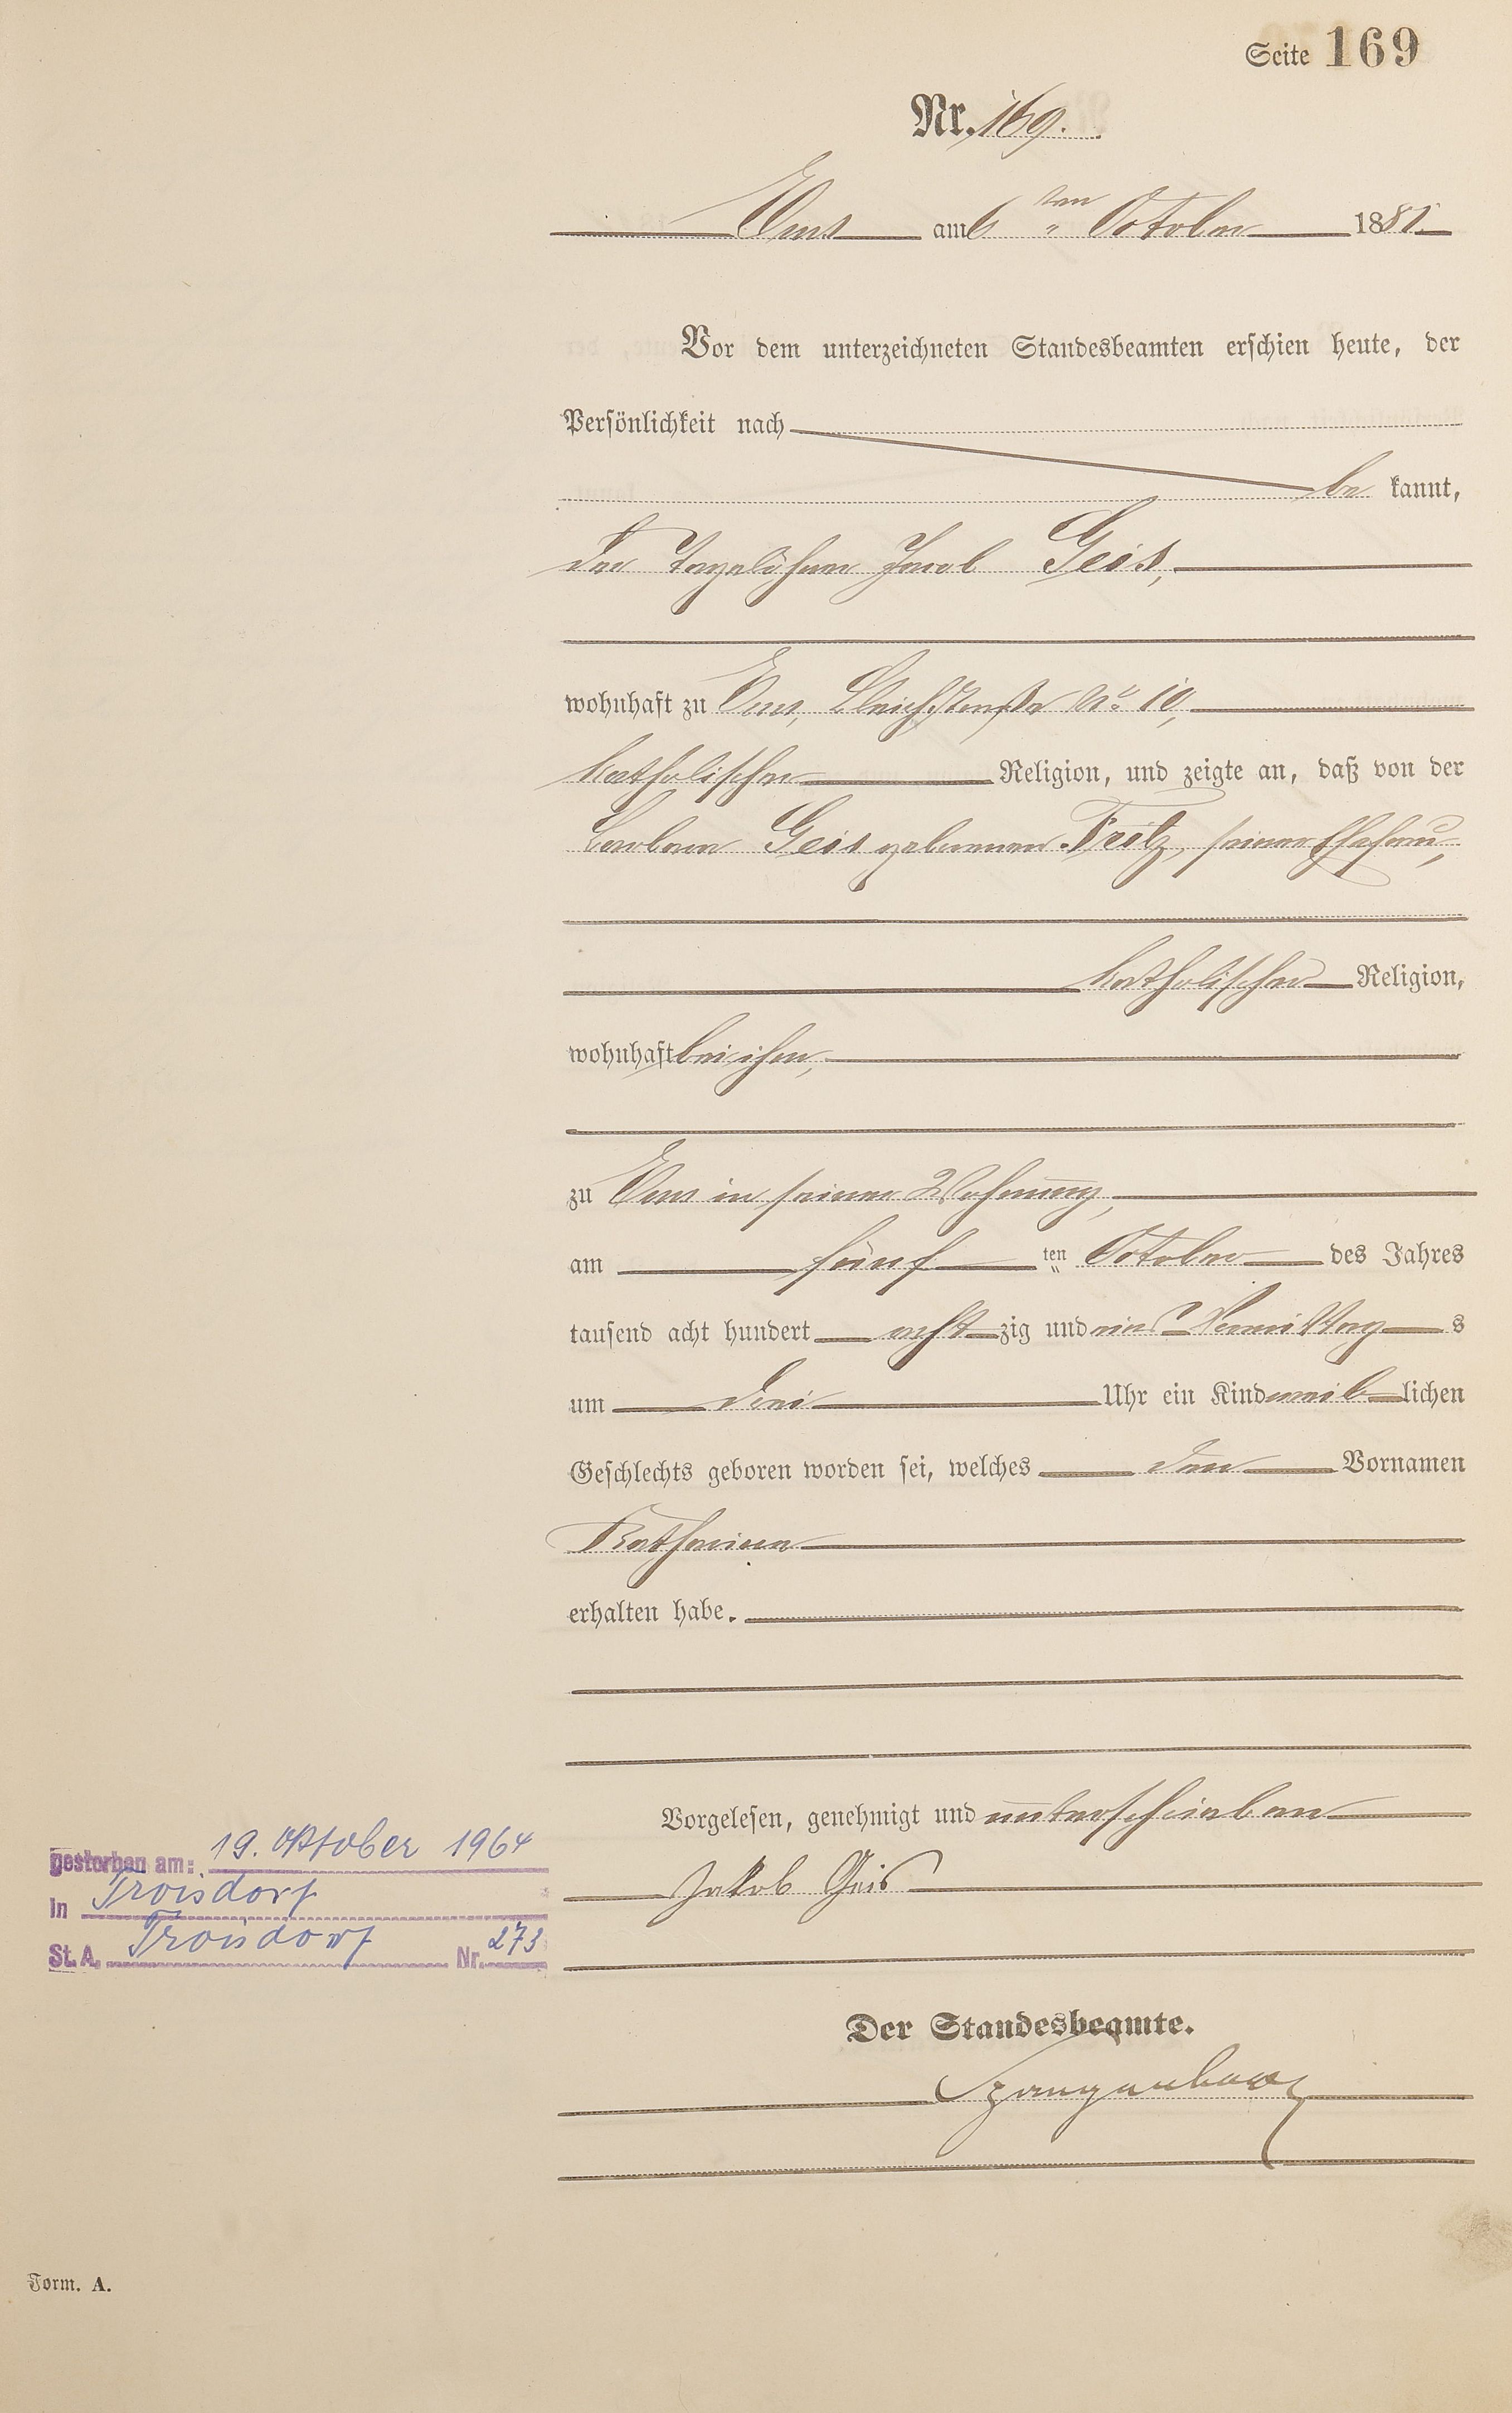 Seite 169
Nr. 169.
Ems am 6 ten October 1881
Vor dem unterzeichneten Standesbeamten erschien heute, der
Persönlichkeit nach
be kannt,
der Tagelöhner Jacob Geis,
wohnhaft zu Ems, Bleichstraße No 10,
katholischer Religion, und zeigte an, daß von der
Barbara Geis geborenen Fritz, seiner Ehefrau,
katholischer Religion,
wohnhaft bei ihm,
zu Ems in seiner Wohnung,
am fünf ten October des Jahres
tausend acht hundert acht zig und eins Vormittag s
um drei Uhr ein Kind weib lichen
Geschlechts geboren worden sei, welches den Vornamen
Katharina
erhalten habe.
Vorgelesen, genehmigt und unterschrieben
Jakob Geis
gestorben am: 19. Oktober 1964
in Troisdorf
St. A. Troisdorf Nr. 273
Der Standesbeamte.
Form. A.